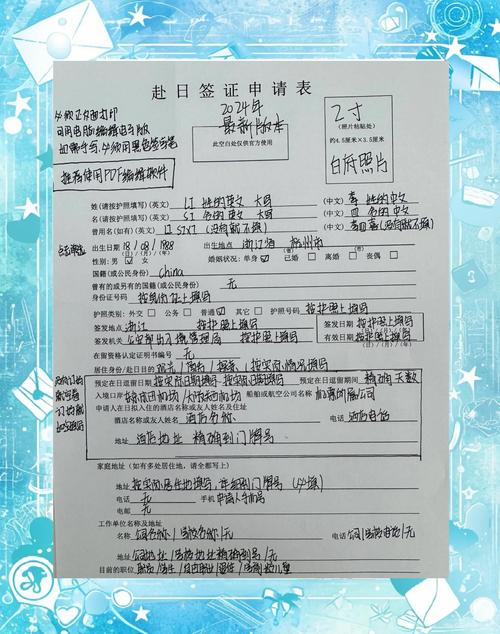 赴日签证申请表
必须正反面打印
可用电脑编辑电子版
如需手写,必须用黑色签字笔
推荐使用PDF编辑软件
2024年
最新版本
此空白处仅供官方使用
2寸
(照片粘贴处)
约4.5厘米×3.5厘米
白底照片
姓(请按护照填写)(英文) LI 姓的英文 大写 (中文) 李 姓的中文
名(请按护照填写)(英文) SI 名的英文 大写 (中文) 四 名的中文
曾用名(如有)(英文) LI SIXI (没有就不填) (中文) 李四喜(没有就不填)
出生日期 18/08/1988 出生地点 浙江省 杭州市
(日)/(月)/(年)
性别:男 ✓ 女 婚姻状况:单身 ✓ 已婚 离婚 丧偶
国籍(或公民身份) China
曾有的或另有的国籍(或公民身份) 无
身份证号码 按身份证上填写
护照类别:外交 公务 普通 ✓ 其它 护照号码 按护照上填写
签发地点 浙江 按护照上填写 签发日期 按护照上填写
(日)/(月)/(年)
签发机关 公安部出入境管理局 按护照上填写 有效日期 按护照上填写
(日)/(月)/(年)
在留资格认定证明书编号 无
居住身份/赴日目的 观光/商务/探亲 按实际情况填写
预定在日逗留日期 按实际日期填写 预定在日逗留期间 精确天数
入境口岸 东京成田机场/大阪关西机场 船舶或航空公司名称 机票所属公司
申请人在日拟入住的酒店名称或友人姓名及住址
酒店名称或友人姓名 酒店名称 电话 酒店电话
地址 酒店地址 精确到门牌号
家庭地址(如有多处居住地,请全部写上)
地址 按实际居住地填写,详细到门牌号(必填)
电话 无 手机 申请人手机号
电邮 无
工作单位名称及地址
名称 公司名称/学校名称/无 电话 公司/学校电话/无
地址 公司地址/学校地址 精确到号/无
目前的职位 职员/学生/自由职业/退休/学龄前儿童